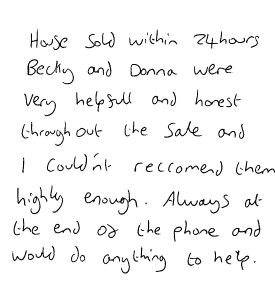 House sold within 24hours
Becky and Donna were
very helpfull and honest
throughout the sale and
I could'nt reccomend them
highly enough. Always at
the end of the phone and
would do anything to help.